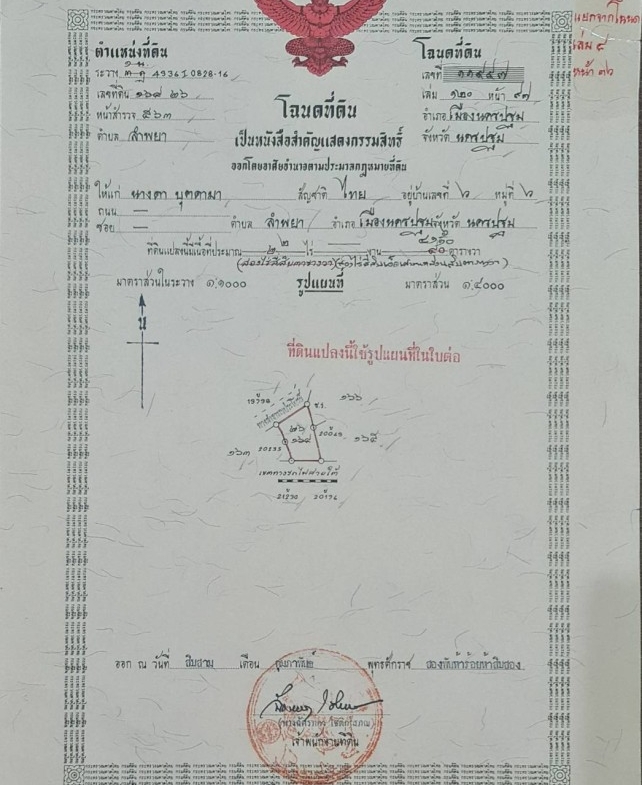 แยกจากโฉนด
เล่ม ๙
หน้า ๗๖
ตำแหน่งที่ดิน
ระวาง 4936 I 0828-16
เลขที่ดิน ๑๖๘ ๒๖
หน้าสำรวจ ๕๖๓
ตำบล ลำพยา
โฉนดที่ดิน
เลขที่ ๑๑๕๔๗
เล่ม ๑๒๐ หน้า ๔๗
อำเภอ เมืองนครปฐม
จังหวัด นครปฐม
โฉนดที่ดิน
เป็นหนังสือสำคัญแสดงกรรมสิทธิ์
ออกโดยอาศัยอำนาจตามประมวลกฎหมายที่ดิน
ให้แก่ นางตา บุตดามา สัญชาติ ไทย อยู่บ้านเลขที่ ๖ หมู่ที่ ๖
ถนน —
ซอย — ตำบล ลำพยา อำเภอ เมืองนครปฐม จังหวัด นครปฐม
ที่ดินแปลงนี้มีเนื้อที่ประมาณ ๒ ไร่ — งาน ๔๐ ตารางวา
(สองไร่สี่สิบตารางวา)
มาตราส่วนในระวาง ๑:๑๐๐๐ รูปแผนที่ มาตราส่วน ๑:๔๐๐๐
น
ที่ดินแปลงนี้ใช้รูปแผนที่ในใบต่อ
๑๖๖
๒๖
๑๖๘
๑๖๕
๑๖๓
เขตทางรถไฟสายใต้
ออก ณ วันที่ สิบสาม เดือน กุมภาพันธ์ พุทธศักราช สองพันห้าร้อยห้าสิบสอง
เจ้าพนักงานที่ดิน